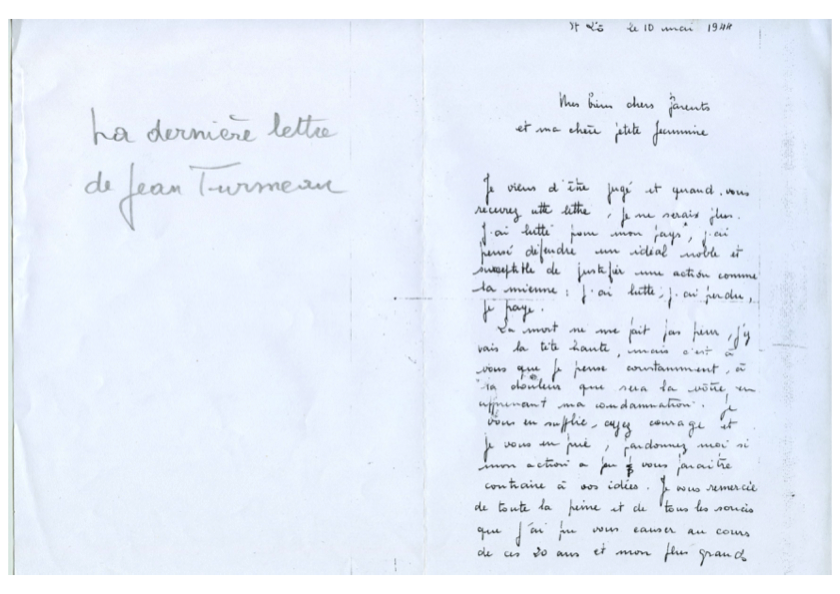 La dernière lettre
de Jean Turmeau
St Lô le 10 mai 1944
Mes bien chers Parents
et ma chère petite Jeannine
Je viens d'être jugé et quand vous
recevrez cette lettre, je ne serais plus.
J'ai lutté pour mon pays, j'ai
pensé défendre un idéal noble et
susceptible de justifier une action comme
la mienne ; j'ai lutté, j'ai perdu,
je paye.
La mort ne me fait pas peur, j'y
vais la tête haute, mais c'est à
vous que je pense constamment, à
la douleur que sera la vôtre en
apprenant ma condamnation. Je
vous en supplie, ayez courage et
je vous en prie, pardonnez moi si
mon action a pu vous paraître
contraire à vos idées. Je vous remercie
de toute la peine et de tous les soucis
que j'ai pu vous causer au cours
de ces 20 ans et mon plus grand